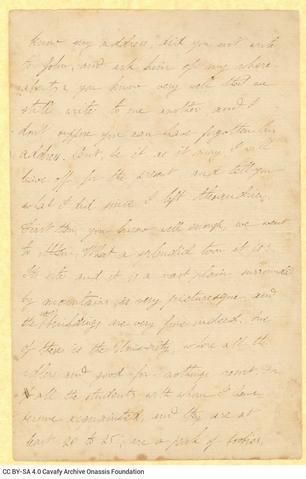 know my address, did you not write
to John, and ask him of my where
abouts, you know very well that we
still write to one another and I
don't suppose you can have forgotten his
address. But, be it as it may, I will
leave off for the present and tell you
what I did since I left Alexandria.
First then, you know well enough, we went
to What a splendid town it is!
Its site and it is a vast plain surrounded
by mountains is very picturesque and
the buildings are very fine indeed. One
of these is the University, where all the
idlers and good for nothings
all the students with whom I have
become acquainted, and they are at
least 20 to 25, are a pack of boobies,
CC BY-SA 4.0 Cavafy Archive Onassis Foundation